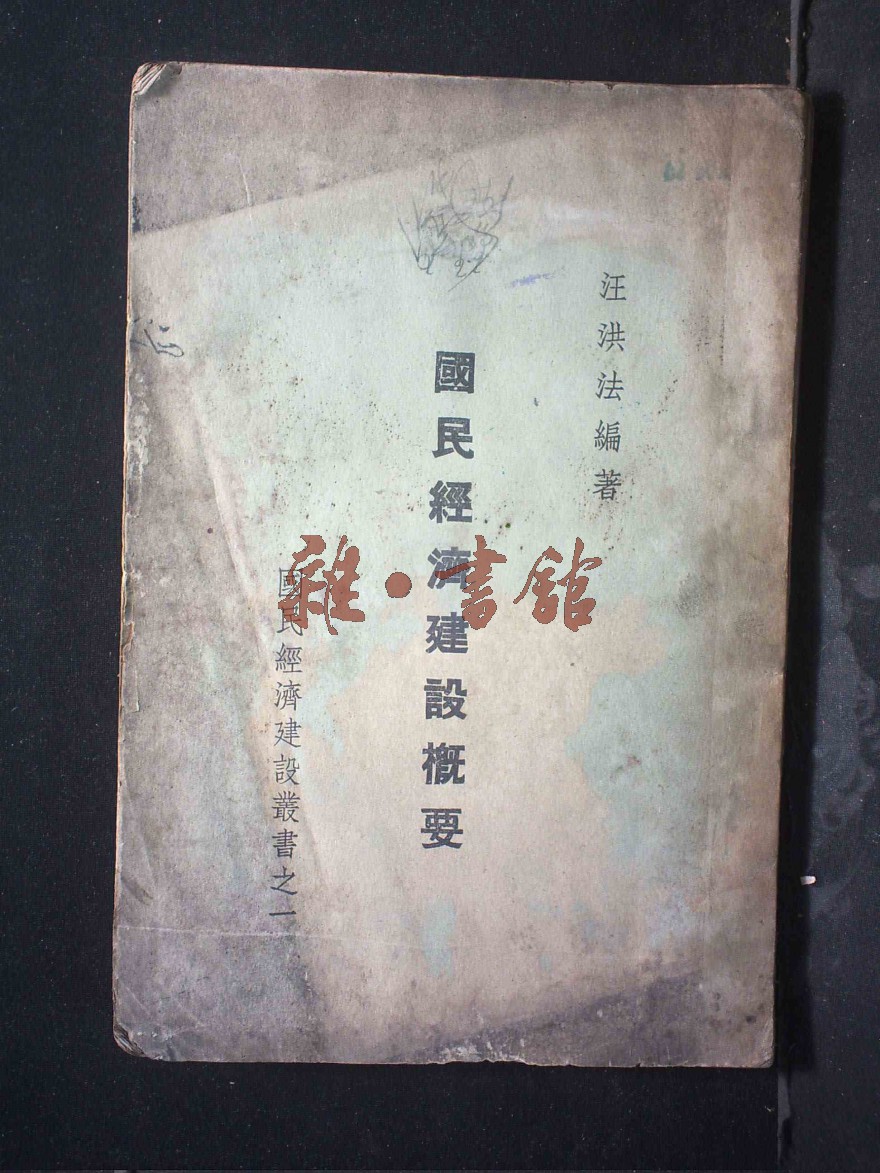 汪洪法編著
國民經濟建設概要
國民經濟建設叢書之一
雜·書館